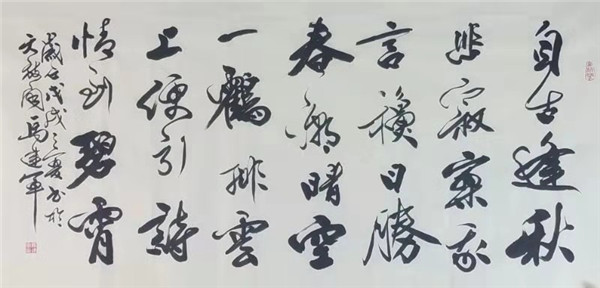 自古逢秋
悲寂寥我
言穐日勝
春朝晴空
一鶴排雲
上便引詩
情到碧霄
歲在戊戌之夏书於
馬建軍